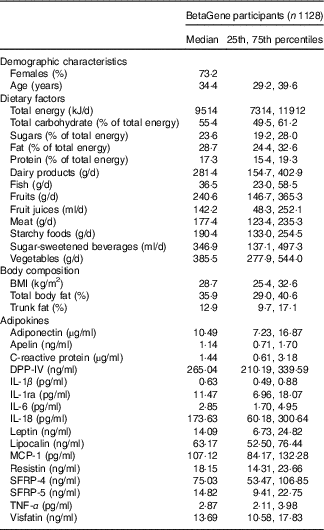 BetaGene participants (n 1128)
Median 25th, 75th percentiles
Demographic characteristics
Females (%) 73·2
Age (years) 34·4 29·2, 39·6
Dietary factors
Total energy (kJ/d) 9514 7314, 11912
Total carbohydrate (% of total energy) 55·4 49·5, 61·2
Sugars (% of total energy) 23·6 19·2, 28·0
Fat (% of total energy) 28·7 24·4, 32·6
Protein (% of total energy) 17·3 15·4, 19·3
Dairy products (g/d) 281·4 154·7, 402·9
Fish (g/d) 36·5 23·0, 58·5
Fruits (g/d) 240·6 146·7, 365·3
Fruit juices (ml/d) 142·2 48·3, 252·1
Meat (g/d) 177·4 123·4, 235·3
Starchy foods (g/d) 190·4 133·0, 254·5
Sugar-sweetened beverages (ml/d) 346·9 137·1, 497·3
Vegetables (g/d) 385·5 277·9, 544·0
Body composition
BMI (kg/m2) 28·7 25·4, 32·6
Total body fat (%) 35·9 29·0, 40·6
Trunk fat (%) 12·9 9·7, 17·1
Adipokines
Adiponectin (μg/ml) 10·49 7·23, 16·87
Apelin (ng/ml) 1·14 0·71, 1·70
C-reactive protein (μg/ml) 1·44 0·61, 3·18
DPP-IV (ng/ml) 265·04 210·19, 339·59
IL-1β (pg/ml) 0·63 0·49, 0·88
IL-1ra (pg/ml) 11·47 6·96, 18·07
IL-6 (pg/ml) 2·85 1·70, 4·95
IL-18 (pg/ml) 173·63 60·18, 300·64
Leptin (ng/ml) 14·09 6·73, 24·82
Lipocalin (ng/ml) 63·17 52·50, 76·44
MCP-1 (pg/ml) 107·12 84·17, 132·28
Resistin (ng/ml) 18·15 14·31, 23·66
SFRP-4 (ng/ml) 75·03 53·47, 106·85
SFRP-5 (ng/ml) 14·82 9·41, 22·75
TNF-α (pg/ml) 2·87 2·11, 3·98
Visfatin (ng/ml) 13·69 10·58, 17·83